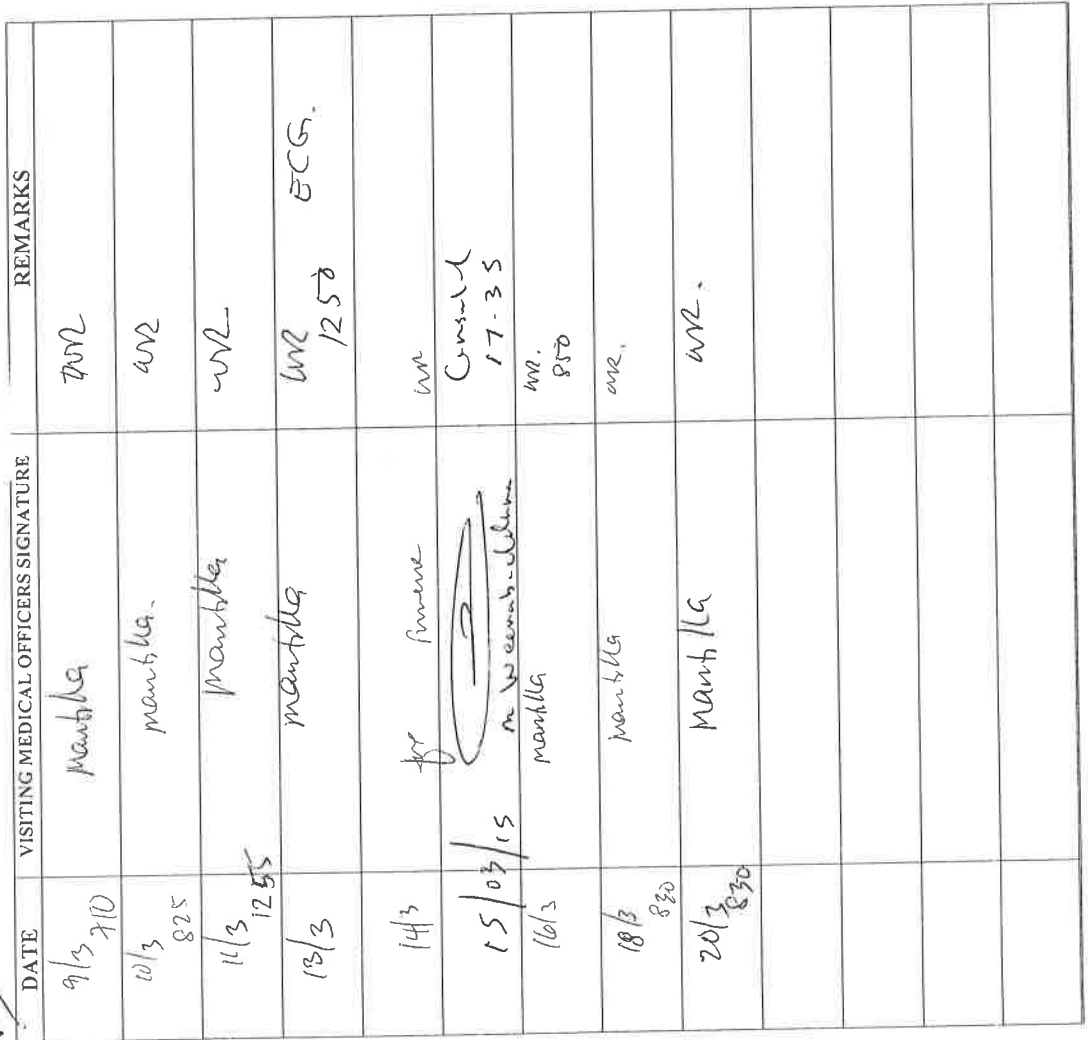 DATE VISITING MEDICAL OFFICERS SIGNATURE REMARKS
9/3 710 Mantilla WR
10/3 825 Mantilla. WR
11/3 1255 Mantilla WR.
13/3 Mantilla WR 1250 ECG.
14/3 WR
15/03/15 Consult 17-35
16/3 Mantilla WR. 850
18/3 830 Mantilla WR.
20/3 830 Mantilla WR.